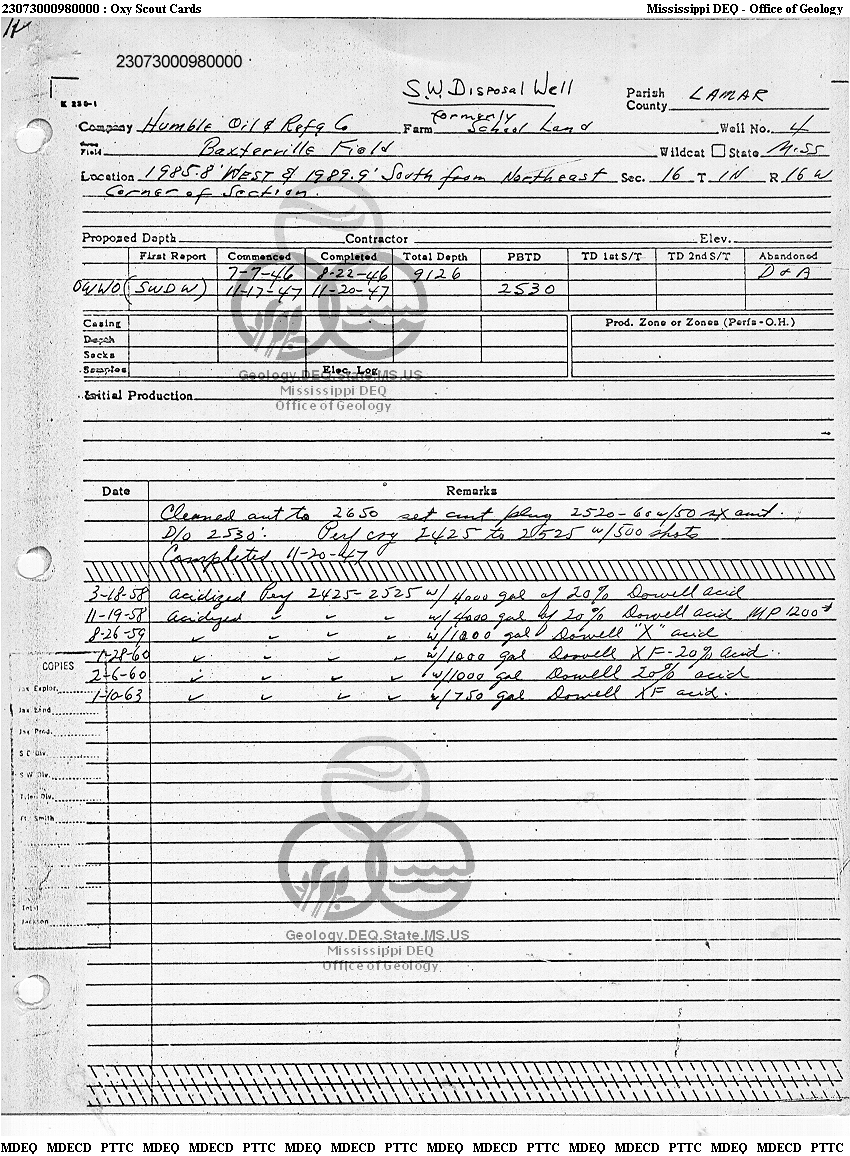 23073000980000 : Oxy Scout Cards Mississippi DEQ - Office of Geology
23073000980000
S.W. Disposal Well
Parish
County LAMAR
K 230-1
Company Humble Oil & Refg Co Farm formerly School Land Well No. 4
Field Baxterville Field Wildcat State Miss
Location 1985.8' WEST & 1989.9' South from Northeast Sec. 16 T. 1N R. 16 W
Corner of Section.
Proposed Depth Contractor Elev.
First Report Commenced Completed Total Depth PBTD TD 1st S/T TD 2nd S/T Abandoned
7-7-46 8-22-46 9126 D & A
OWWO (SWDW) 11-17-47 11-20-47 2530
Casing Prod. Zone or Zones (Perfs-O.H.)
Depth
Sacks
Samples Elec. Log
Geology.DEQ.State.MS.US
Mississippi DEQ
Office of Geology
Initial Production
Date Remarks
Cleaned out to 2650 set cmt plug 2520-60 w/50 sx cmt.
D/o 2530'. Perf csg 2425 to 2525 w/500 shots
Completed 11-20-47
3-18-58 acidized Perf 2425-2525 w/4000 gal of 20% Dowell acid
11-19-58 acidized ✓ ✓ ✓ w/4000 gal of 20% Dowell acid MP 1200#
8-26-59 ✓ ✓ ✓ ✓ w/1000 gal Dowell "X" acid
1-28-60 ✓ ✓ ✓ ✓ w/1000 gal Dowell XF-20% acid.
2-6-60 ✓ ✓ ✓ ✓ w/1000 gal Dowell 20% acid
1-10-63 ✓ ✓ ✓ ✓ w/750 gal Dowell XF acid.
COPIES
Jax Explor.
Jax Land
Jax Prod.
S E Div.
S W Div.
Tyler Div.
Ft. Smith
Total
Jackson
Geology.DEQ.State.MS.US
Mississippi DEQ
Office of Geology
MDEQ MDECD PTTC MDEQ MDECD PTTC MDEQ MDECD PTTC MDEQ MDECD PTTC MDEQ MDECD PTTC MDEQ MDECD PTTC